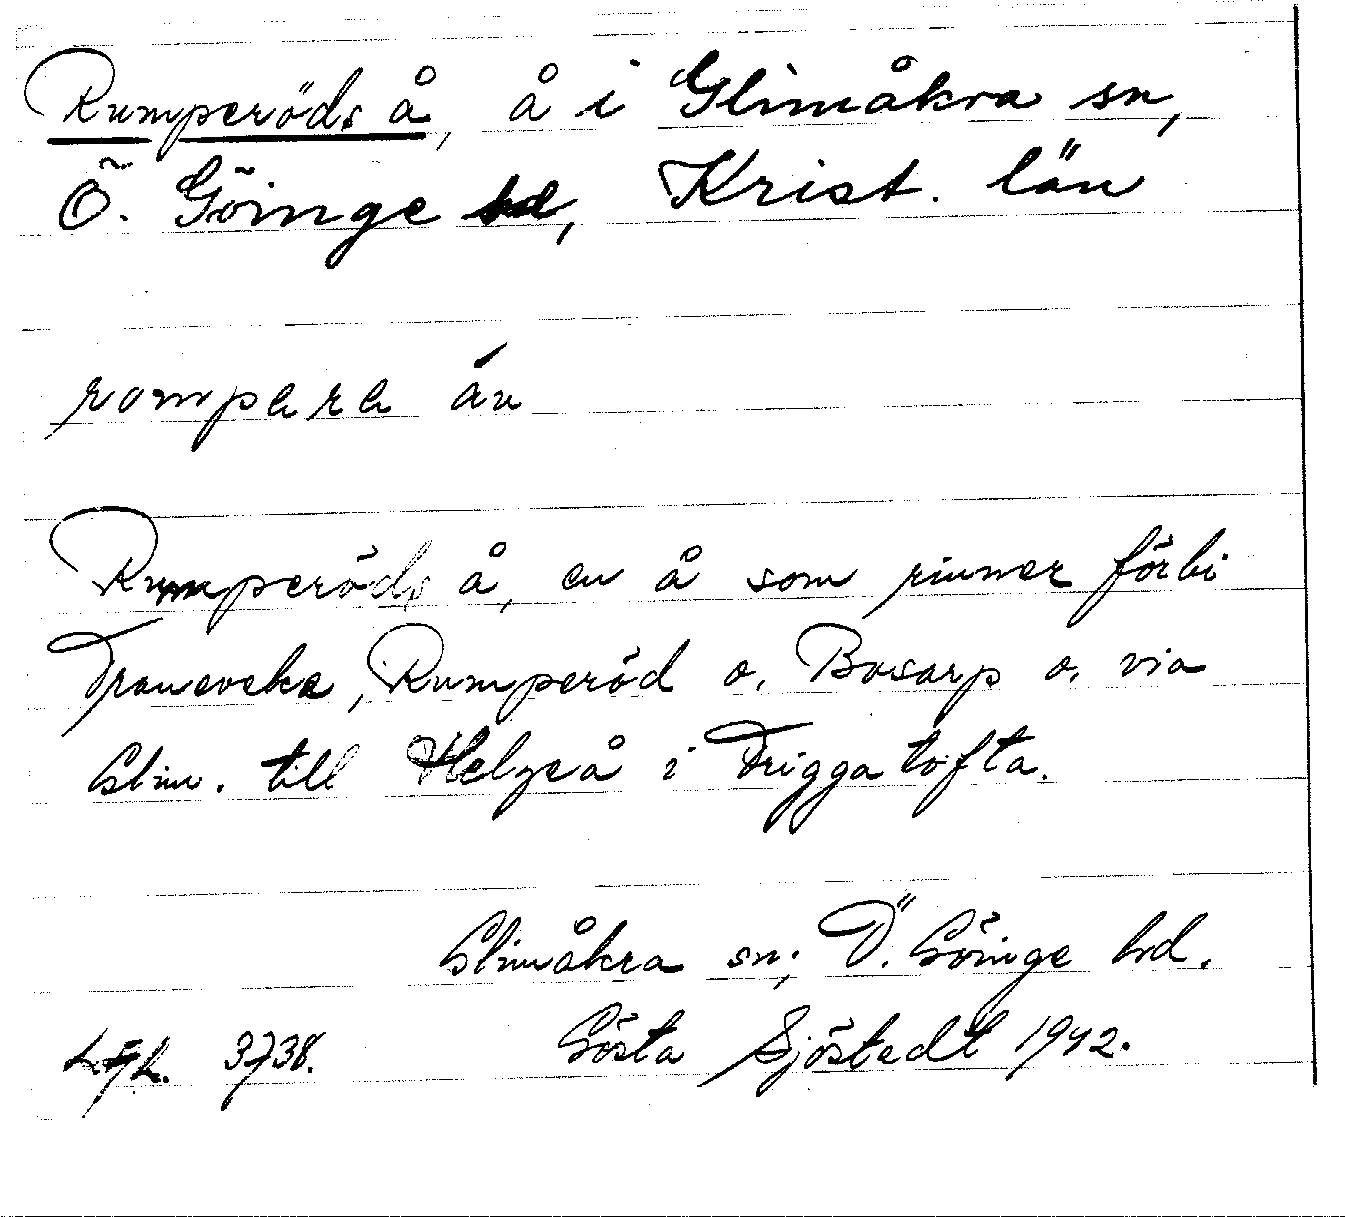 Rumperöds å, å i Glimåkra sn,
Ö. Göinge hd, Krist. län
rompara án
Rumperöds å, en å som rinner förbi
Traneveka, Rumperöd o. Bosarp o. via
Glim. till Helgeå i Triggatofta.
Glimåkra sn; Ö. Göinge hd.
3738. Gösta Sjöstedt 1942.